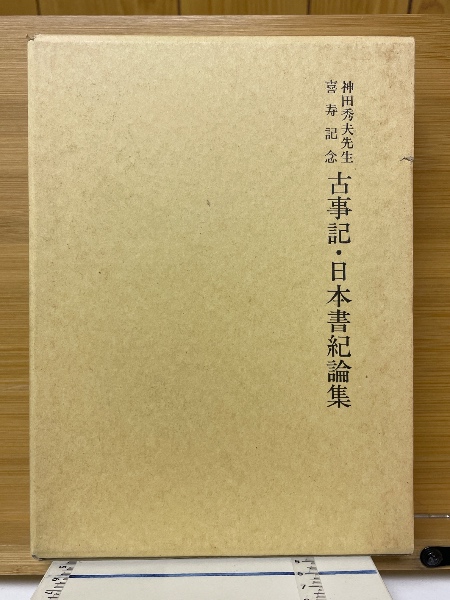 神田秀夫先生
喜寿記念
古事記・日本書紀論集